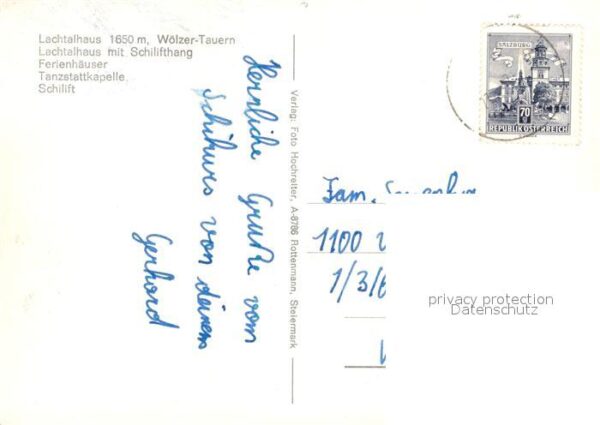 Lachtalhaus 1650 m, Wölzer-Tauern
Lachtalhaus mit Schilifthang
Ferienhäuser
Tanzstattkapelle
Schilift
Herrliche Grüße vom
Schikurs von deinem
Gerhard
Verlag: Foto Hochreiter, A-8786 Rottenmann, Steiermark
SALZBURG
70
REPUBLIK ÖSTERREICH
Fam.
1100
1/3/6
privacy protection
Datenschutz